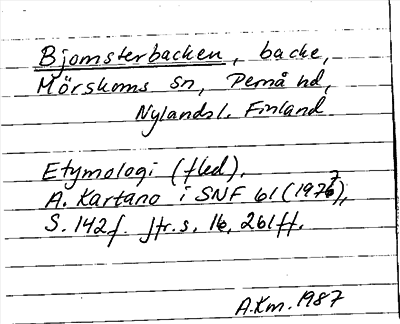 Bjomsterbacken, backe,
Mörskoms sn, Pernå hd,
Nylands l. Finland
Etymologi (fled).
A. Kartano i SNF 61 (1977),
S. 142 f. Jfr. s. 16, 261 ff.
A.Km. 1987